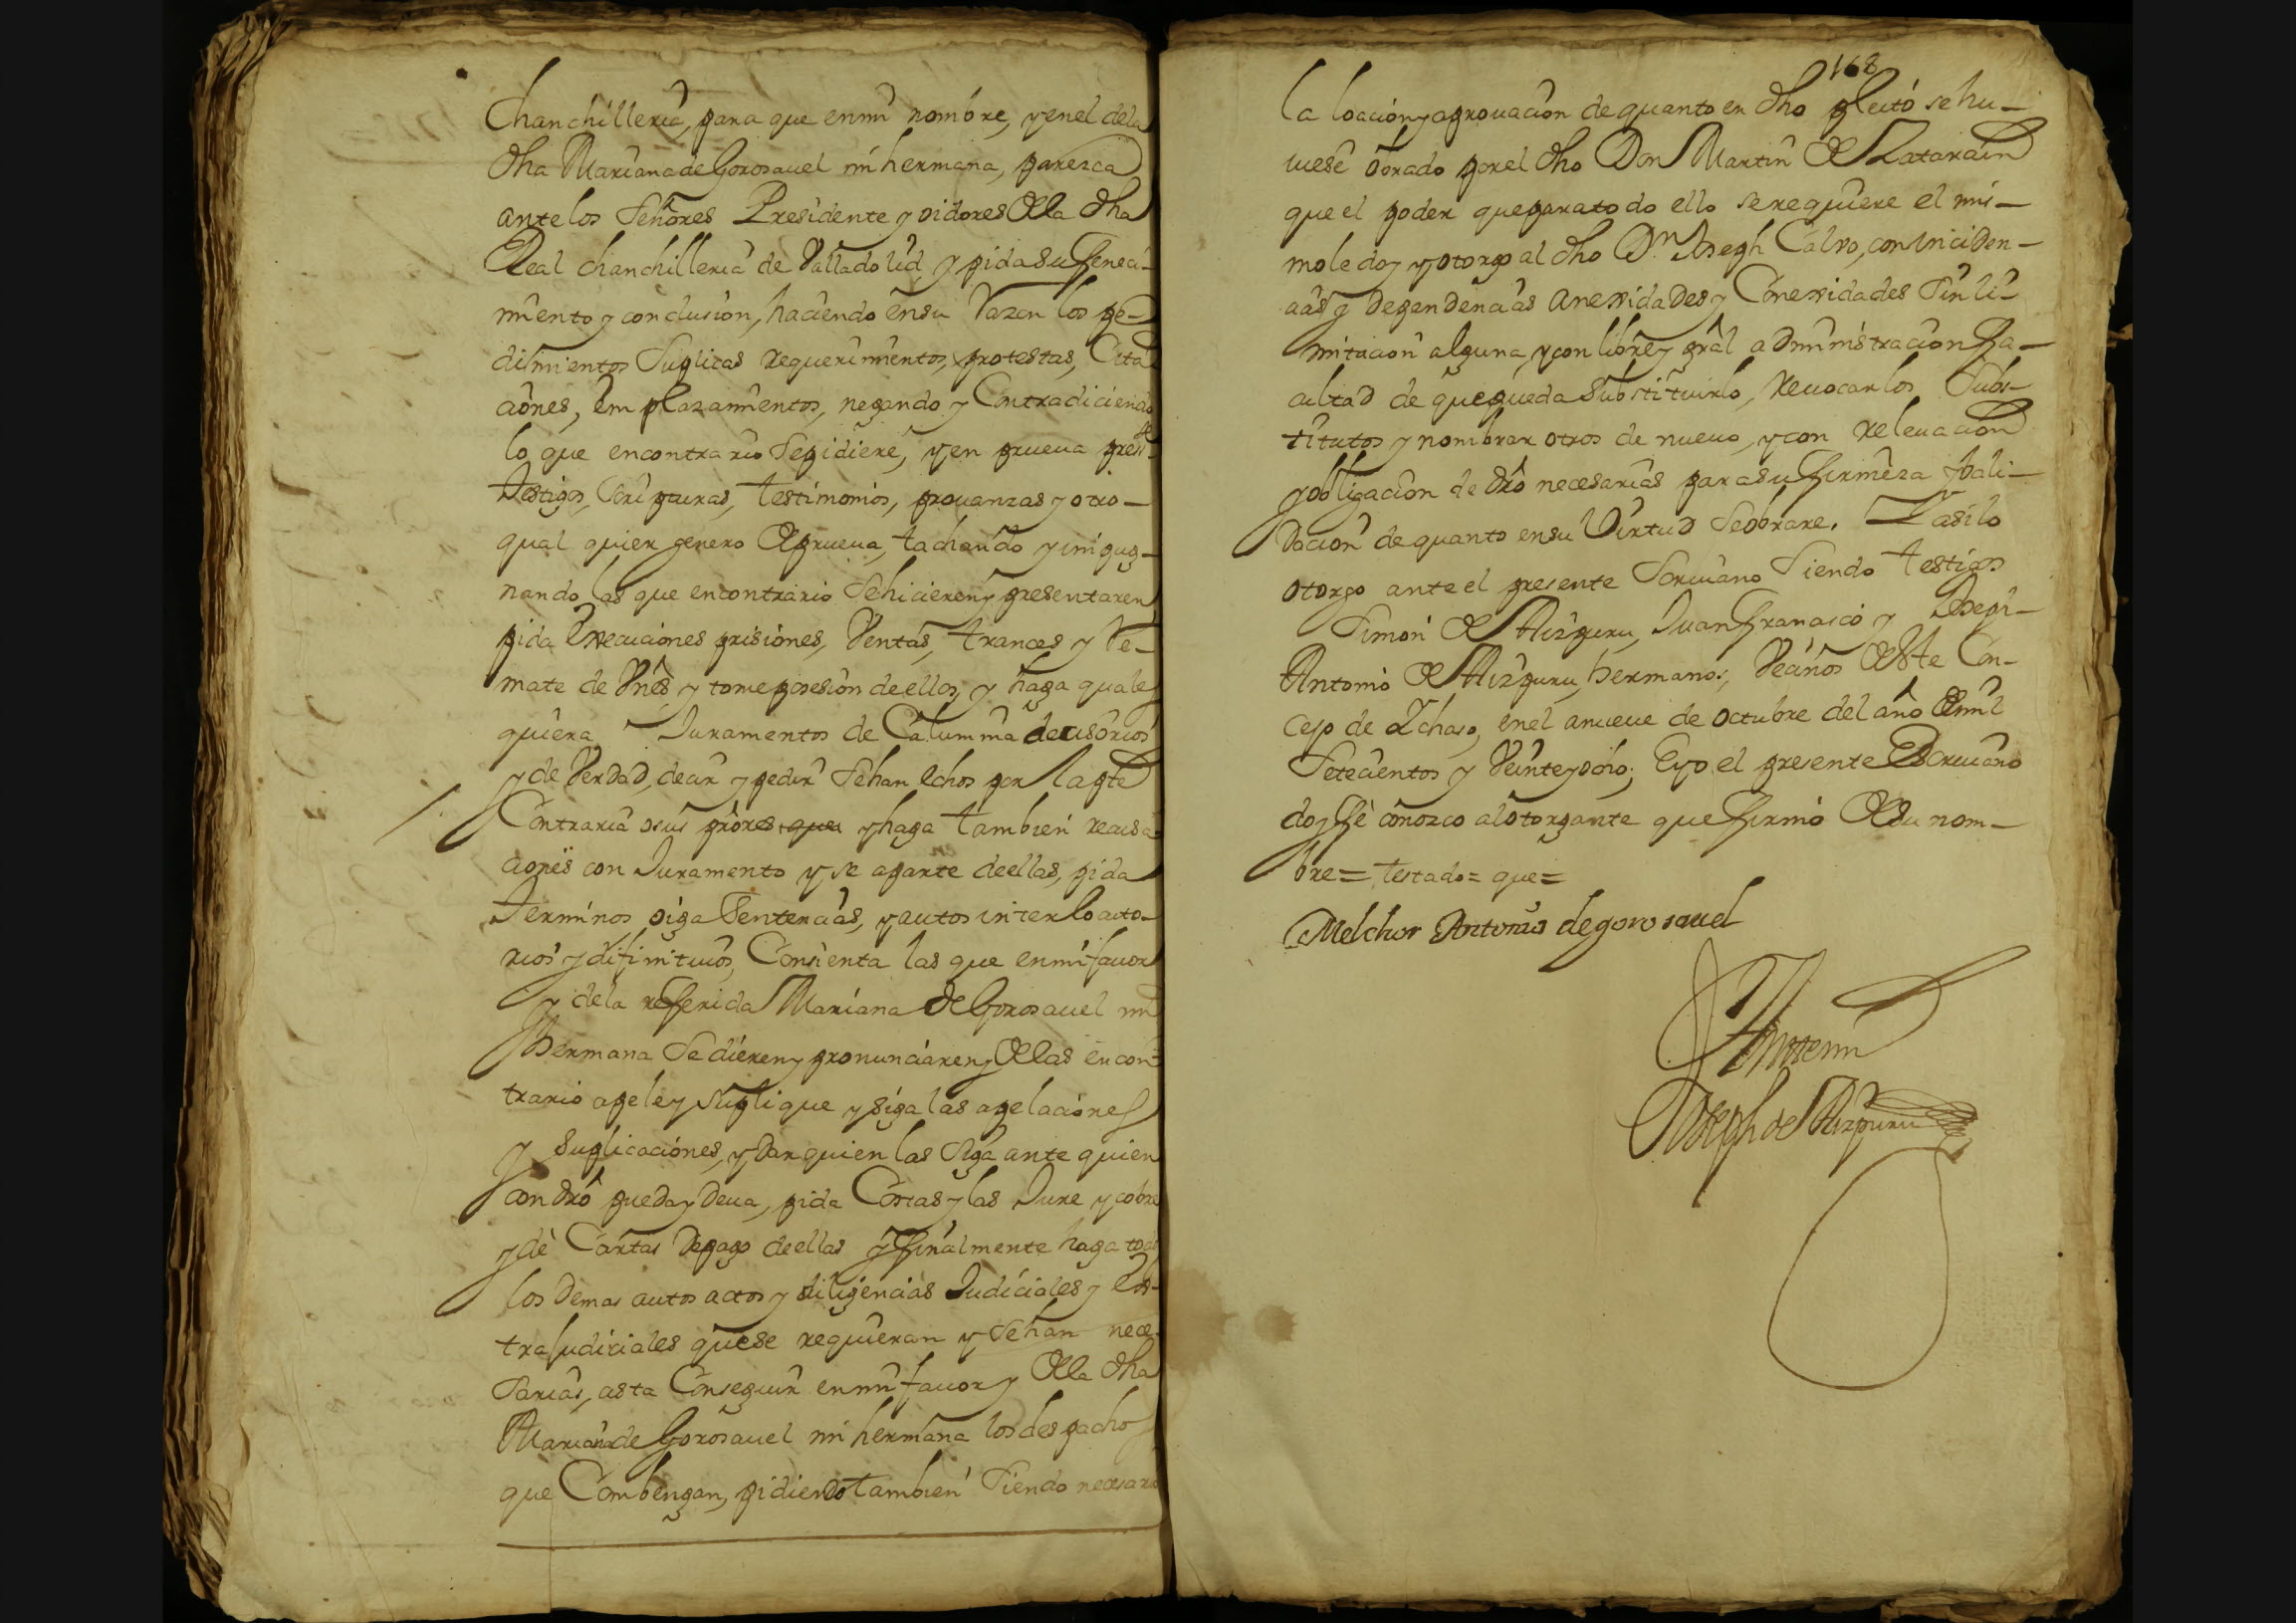 Chanchilleria, para que en mi nombre, y en el de la
dha Mariana de Gorosauel mi hermana, paresca
ante los Señores Presidente y oidores de la dha
Real chanchilleria de Valladolid, y pida su feneci-
miento y conclusion, haciendo en su razon los pe-
dimientos suplicas requerimientos, protestas, Cita
aones, emplazamientos, negando y Contradiciendo
lo que en contrario se pidiere, y en prueua presete
testigos, scripturas, testimonios, prouanzas y otro-
qual quier genero de prueua, tachando y inpug-
nando las que en contrario se hicieren y presentaren
pida execuciones prisiones, Ventas, trances y Re-
mate de Vnes y tome posesion de ellos, y haga quales
quiera Juramentos de Calumnia decisorios
y de Verdad, decir y pedir se han echos por la pte
Contraria o sus prôres que y haga tambien recusa
aones con Juramento y se aparte de ellas, pida
Terminos, oiga Sentencias, y autos interlocuto-
rios y difinitiuos, Consienta las que en mi fauor
y de la referida Mariana de Gorosauel mi
hermana se dieren y pronunciaren y de las en con-
trario apele y suplique y siga las apelaciones
y suplicaciones, y dar quien las siga ante quien
con drô pueda y deua, pida Costas y las Jure y cobre
y dè Cartas de pago de ellas y finalmente haga todos
los demas autos actos y diligencias Judiciales y Es-
trajudiciales que se requieran y se han nece-
sarias, asta Conseguir en mi fauor y de la dha
Mariana de Gorosauel mi hermana los despachos
que Combengan, pidiendo tambien siendo necesario
168
la loacion y aprouacion de quanto en dho pleito se hu-
uiese obrado por el dho Don Martin de Zatarain
que el poder que para todo ello se requiere el mis-
mo le doy y otorgo al dho Dn. Joseph Calvo, con inciden-
cias y dependencias anexidades y Conexidades sin li-
mitacion alguna, y con libre y grâl administracion fa-
cultad de que pueda substituirlo, reuocar los subs-
titutos y nombrar otros de nueuo, y con releuacion
y obligacion de drô necesarias para su firmeza y bali-
dacion de quanto en su Virtud se obrare. Y asi lo
otorgo ante el presente Scriuano siendo testigos
Simon de Aizpuru, Juan Francisco y Joseph
Antonio de Aizpuru, hermanos, Vecinos de este Con-
cejo de Ychaso, en el a nueue de octubre del año de mil
setecientos y Veinte y ocho; E yo el presente Escriuano
doy fè conozco al otorgante que firmó de su nom-
bre= testado= que=
Melchor Antonio de gorosauel
Ante mi
Joseph de Aizpuru